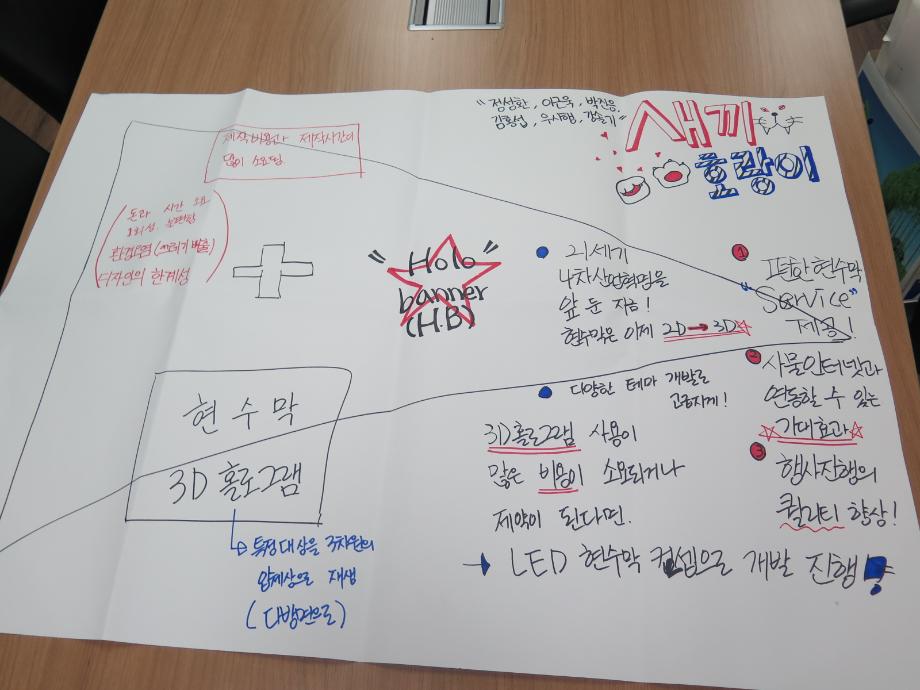 "정성환, 이근욱, 박진응,
김홍섭, 우사행, 강슬기"
새끼
호랑이
제작비용과 제작시간이
많이 소요됨
돈과 시간 소요
1회성
환경오염 (쓰레기 배출)
디자인의 한계성
"Holo
banner"
(H.B)
현수막
3D 홀로그램
특정대상을 3차원의
입체상으로 재생
(다방면으로)
21세기
4차산업혁명을
앞 둔 지금!
현수막은 이제 2D → 3D
다양한 테마 개발로
고급지게!
3D홀로그램 사용이
많은 비용이 소모되거나
제약이 된다면.
→ LED 현수막 컨셉으로 개발 진행!
1
편한 현수막
"Service"
제공!
2
사물인터넷과
연동할 수 있는
기대효과
3
행사진행의
퀄리티 향상!